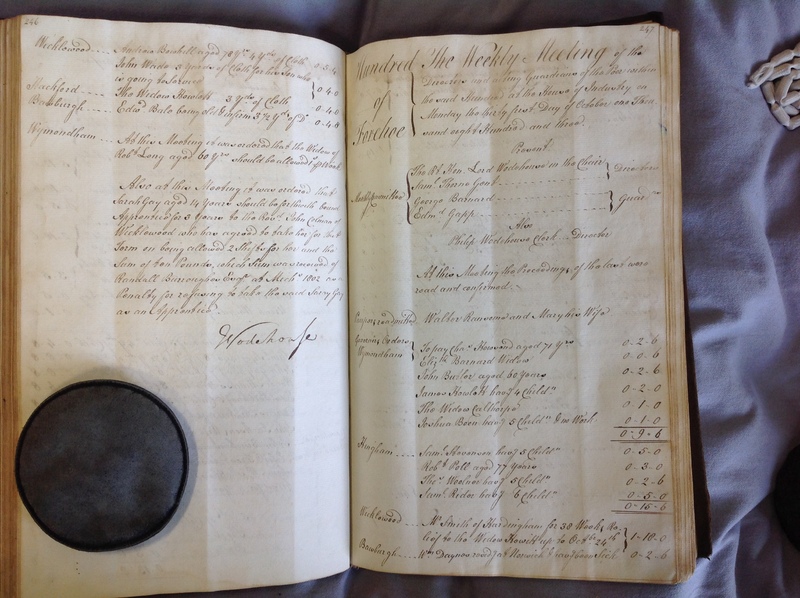 246
Wicklowood Andrew Bowbell aged 70 Yrs 4 Yds of Cloth 0-5-4
John Wade 3 Yards of Cloth for his Son who
is going to Service } 0-4-0
Mackford The Widow Howlett 3 Yds of Cloth 0-4-0
Bawburgh Edwd Bale being old & infirm 3½ Yds of Do 0-4-8
Wymondham At this Meeting it was ordered that the Widow of
Robt Long aged 60 Yrs should be allowed 1s per Week
Also at this Meeting it was ordered that
Sarah Gay aged 14 Years should be forthwith bound
Apprentice for 3 Years to the Revd John Colman of
Wicklowood who has agreed to take her for that
Term on being allowed 2 Shifts for her and the
Sum of ten Pounds, which Sum was received of
Randall Burroughes Esqr at Michs 1802 as
Penalty for refusing to take the said Sarah Gay
as an Apprentice
Wodehouse
247
Hundred of Forehoe
The Weekly Meeting of the
Directors and acting Guardians of the Poor within
the said Hundred at the House of Industry on
Monday the thirty first Day of October one Thou
sand eight Hundred and three.
Present
The Rt Hon. Lord Wodehouse in the Chair
Saml Thorne Gent } Directors
George Barnard
Edmd Gapp } Guardns
Also
Philip Wodehouse Clerk Director
At this Meeting the Proceedings of the last were
read and confirmed.
Paupers admitted Walter Ransome and Mary his Wife
Wymondham To pay Chas Howard aged 71 Yrs 0-2-6
Elizth Barnard Widow 0-0-6
John Butler aged 60 Years 0-2-6
James Howlett havg 4 Childn 0-2-0
The Widow Calthorpe 0-1-0
Joshua Boen havg 5 Childn & no Work 0-1-0
0-9-6
Hingham Saml Stevenson havg 5 Childn 0-5-0
Robt Poll aged 77 Years 0-3-0
Thos Woolner havg 5 Childn 0-2-6
Saml Rider havg 6 Childn 0-5-0
0-15-6
Wicklowood Mr Smith of Hardingham for 38 Weeks Re-
lief to the Widow Howitt up to Octr 24th } 1-18-0
Bawburgh Wm Daynes resid. at Norwich 0-2-6